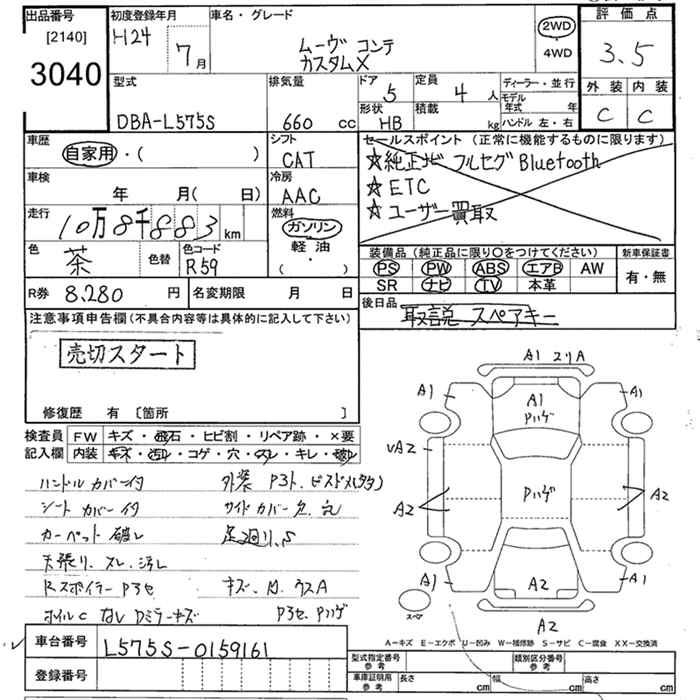 出品番号
[2140]
3040
初度登録年月
H24
7月
車名・グレード
ムーヴ コンテ
カスタムX
2WD
4WD
評価点
3.5
外装 内装
C C
型式
DBA-L575S
排気量
660 cc
ドア
5
定員
4 人
形状
HB
積載
kg
ディーラー・並行
モデル年式 年
ハンドル 左・右
車歴
自家用・( )
シフト
CAT
セールスポイント (正常に機能するものに限ります)
☆純正ナビ フルセグ Bluetooth
☆ETC
☆ユーザー買取
車検
年 月( 日)
冷房
AAC
走行
10万8千883 km
燃料
ガソリン
軽油
( ・ )
色
茶
色替
色コード
R59
装備品 (純正品に限り○をつけてください)
新車保証書
PS PW ABS エアB AW
SR ナビ TV 本革
有・無
R券 8,280 円
名変期限 月 日
後日品
取説 スペアキー
注意事項申告欄 (不具合内容等は具体的に記入して下さい)
売切スタート
修復歴 有 〔箇所 〕
検査員
記入欄
FW キズ・飛石・ヒビ割・リペア跡・×要
内装 キズ・汚れ・コゲ・穴・スレ・キレ・破レ
ハンドル カバー付
シート カバー付
カーペット 破レ
天張り.スレ.汚レ
Rスポイラー P3セ
ホイルC なし Dミラーキズ
外装 P3ト.
サイド カバー
足廻リ.S
キズ. 凹 ウスA
P3セ. Pハゲ
A1 スリA
A1
A1
A1
Pハゲ
VA2
Pハゲ
A2
A2
A1
A1
A2
スペア
A2
A−キズ E−エクボ U−凹み W−補修跡 S−サビ C−腐食 XX−交換済
車台番号
L575S-0159161
登録番号
型式指定番号
参考
類別区分番号
参考
車庫証明用
参考
長さ cm
幅 cm
高さ cm